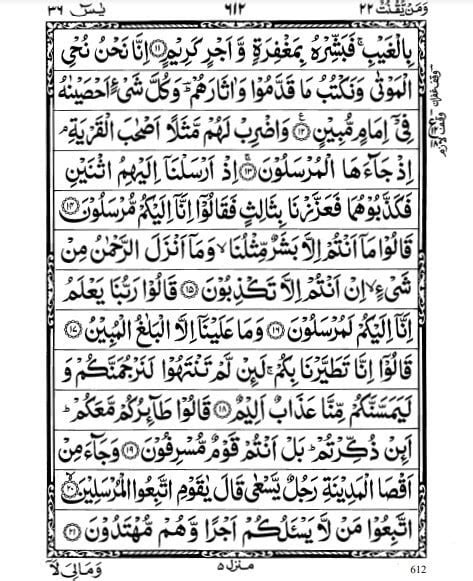 وَمَنْ يَّقْنُتْ ٢٢
٦١٢
يٰسٓ ٣٦
بِالْغَيْبِ ۚ فَبَشِّرْهُ بِمَغْفِرَةٍ وَّ اَجْرٍ كَرِيْمٍ ۝١١ اِنَّا نَحْنُ نُحْيِ
الْمَوْتٰى وَنَكْتُبُ مَا قَدَّمُوْا وَاٰثَارَهُمْ ؕ وَكُلَّ شَىْءٍ اَحْصَيْنٰهُ
فِىْۤ اِمَامٍ مُّبِيْنٍ ۝١٢ وَاضْرِبْ لَهُمْ مَّثَلًا اَصْحٰبَ الْقَرْيَةِ ۘ
اِذْ جَآءَهَا الْمُرْسَلُوْنَ ۝١٣ اِذْ اَرْسَلْنَاۤ اِلَيْهِمُ اثْنَيْنِ
فَكَذَّبُوْهُمَا فَعَزَّزْنَا بِثَالِثٍ فَقَالُوْۤا اِنَّاۤ اِلَيْكُمْ مُّرْسَلُوْنَ ۝١٤
قَالُوْا مَاۤ اَنْتُمْ اِلَّا بَشَرٌ مِّثْلُنَا ۙ وَمَاۤ اَنْزَلَ الرَّحْمٰنُ مِنْ
شَىْءٍ ۙ اِنْ اَنْتُمْ اِلَّا تَكْذِبُوْنَ ۝١٥ قَالُوْا رَبُّنَا يَعْلَمُ
اِنَّاۤ اِلَيْكُمْ لَمُرْسَلُوْنَ ۝١٦ وَمَا عَلَيْنَاۤ اِلَّا الْبَلٰغُ الْمُبِيْنُ ۝١٧
قَالُوْۤا اِنَّا تَطَيَّرْنَا بِكُمْ ۚ لَئِنْ لَّمْ تَنْتَهُوْا لَنَرْجُمَنَّكُمْ وَ
لَيَمَسَّنَّكُمْ مِّنَّا عَذَابٌ اَلِيْمٌ ۝١٨ قَالُوْا طَآئِرُكُمْ مَّعَكُمْ ؕ
اَئِنْ ذُكِّرْتُمْ ؕ بَلْ اَنْتُمْ قَوْمٌ مُّسْرِفُوْنَ ۝١٩ وَجَآءَ مِنْ
اَقْصَا الْمَدِيْنَةِ رَجُلٌ يَّسْعٰى قَالَ يٰقَوْمِ اتَّبِعُوا الْمُرْسَلِيْنَ ۝٢٠
اتَّبِعُوْا مَنْ لَّا يَسْئَلُكُمْ اَجْرًا وَّهُمْ مُّهْتَدُوْنَ ۝٢١
وقف غفران
وقف لازم
منزل ٥
وَمَالِىَ لَاۤ
612